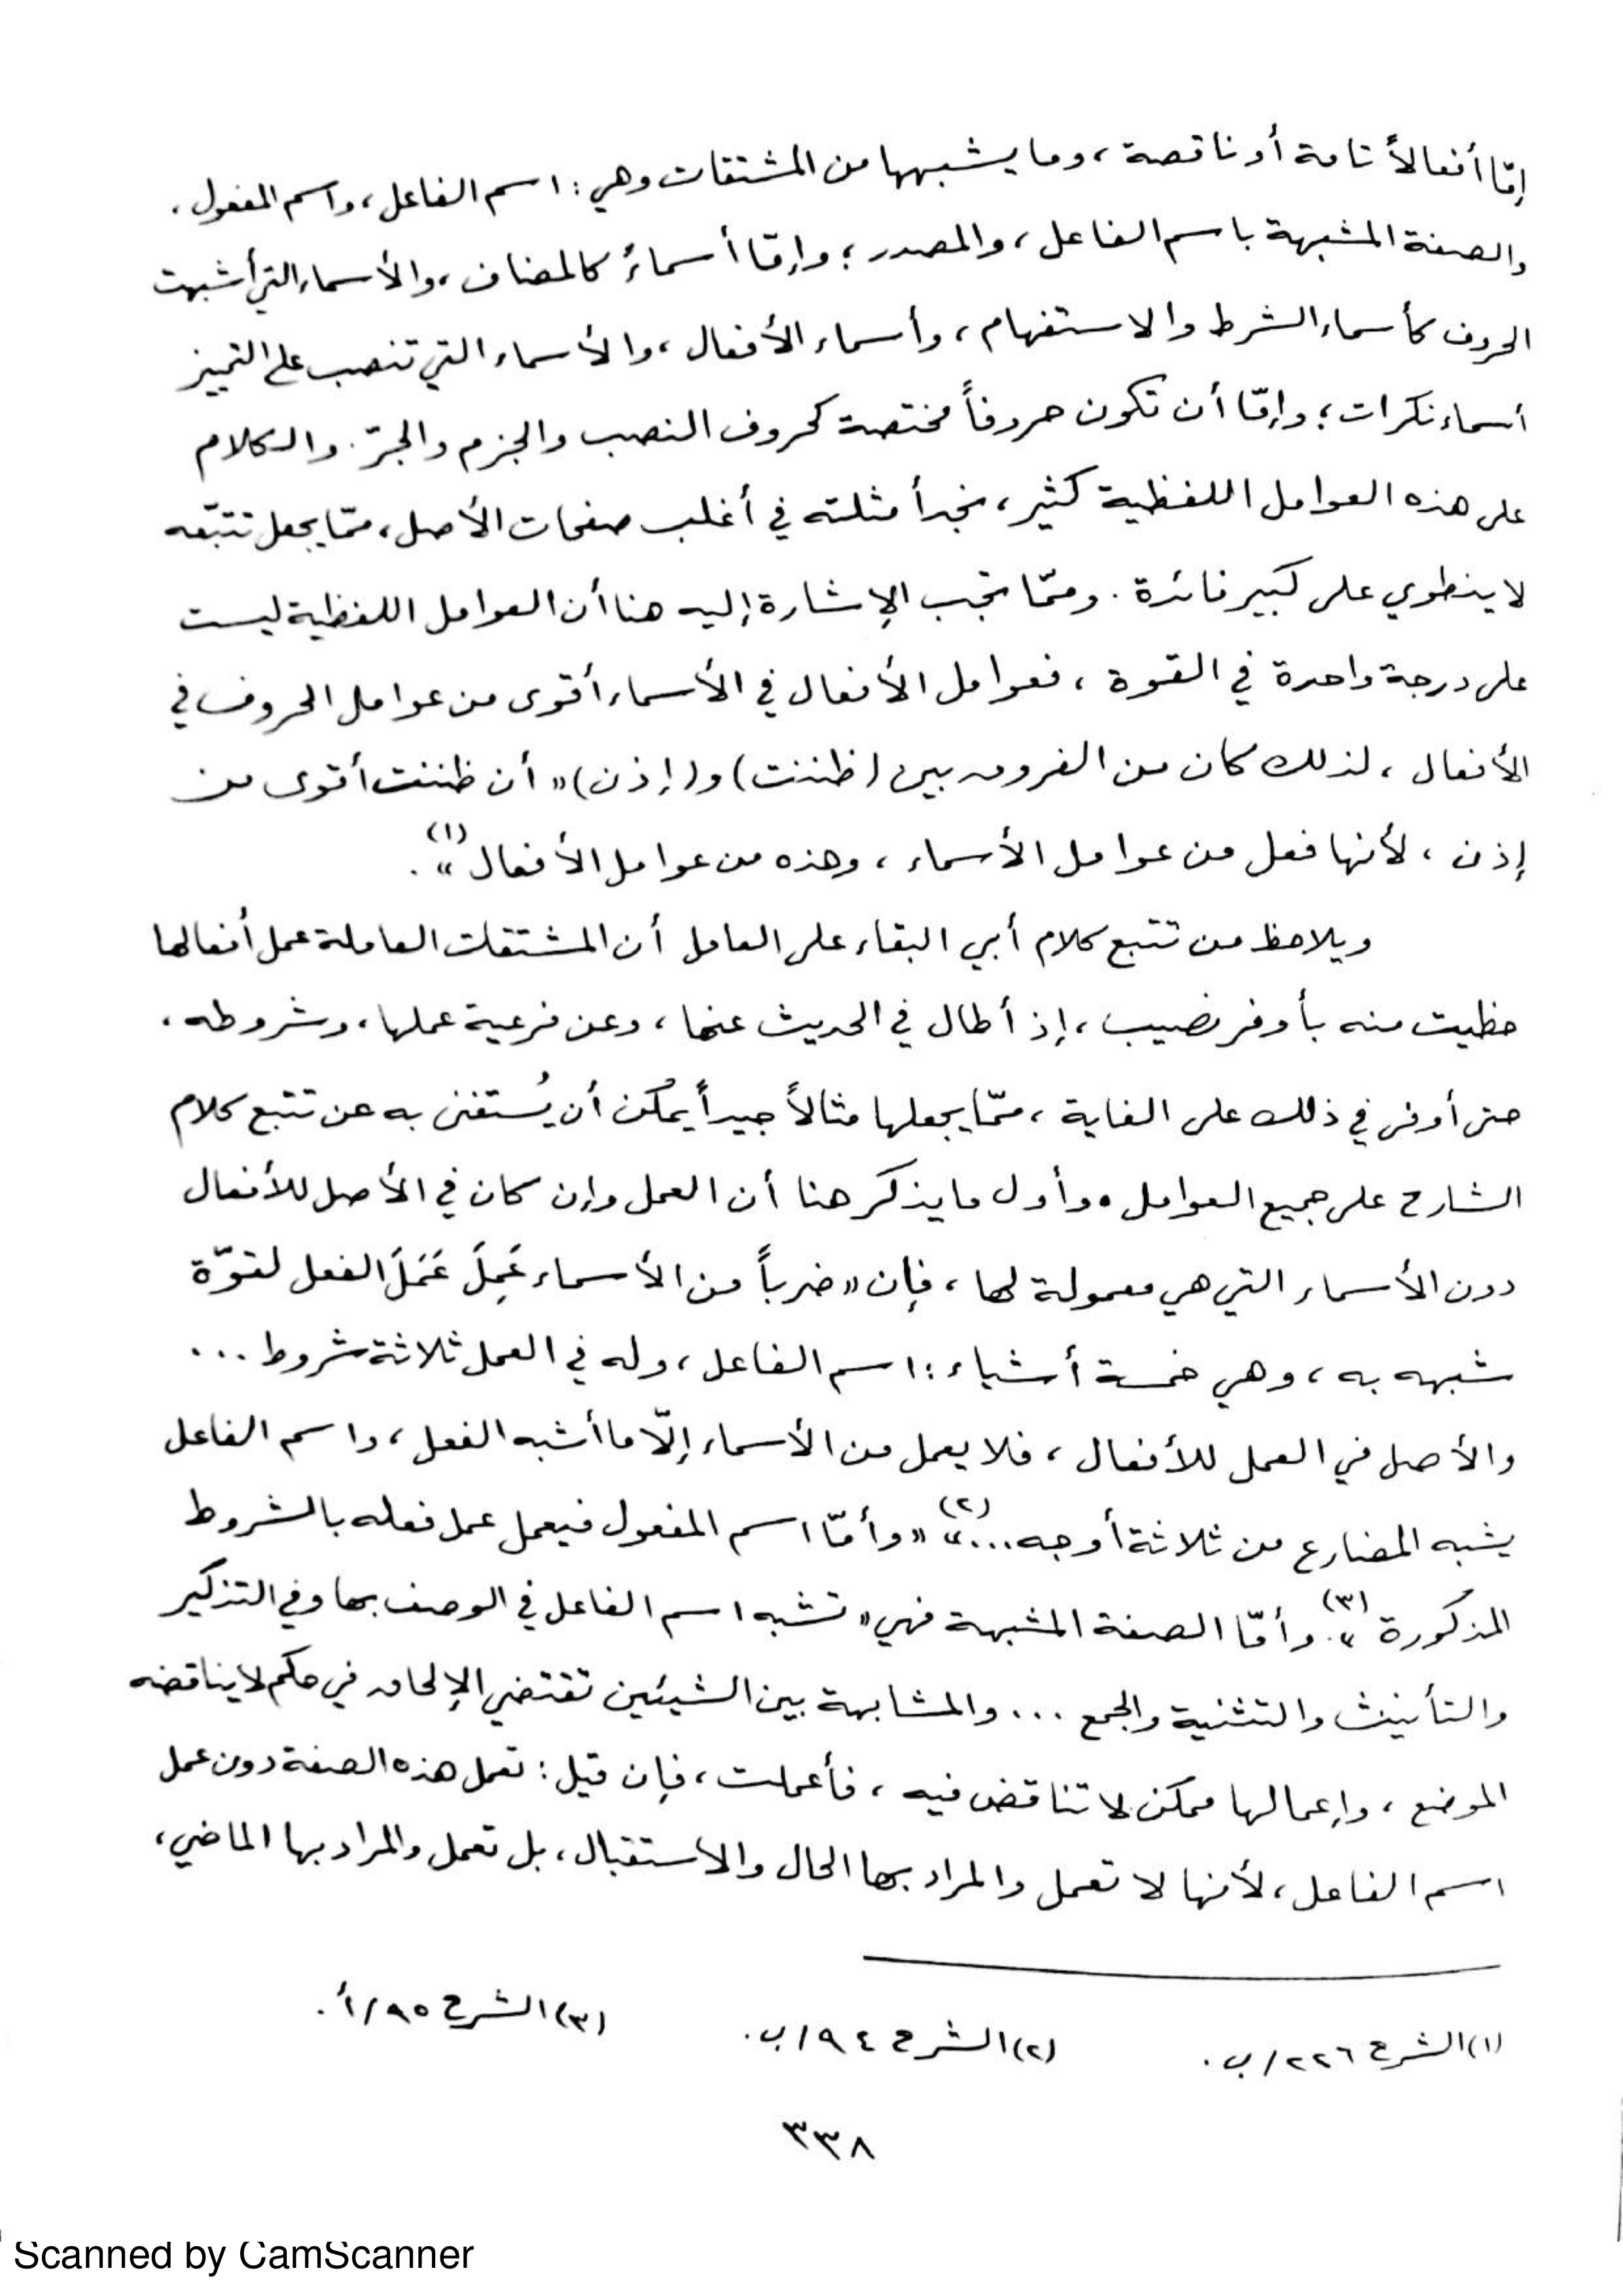 إمّا أفعالاً تامة أو ناقصة، وما يشبهها من المشتقات وهي: اسم الفاعل، واسم المفعول،
والصفة المشبهة باسم الفاعل، والمصدر؛ وإمّا أسماءً كالمضاف، والأسماء التي أشبهت
الحروف كأسماء الشرط والاستفهام، وأسماء الأفعال، والأسماء التي تنصب على التمييز
أسماء نكرات؛ وإمّا أن تكون حروفاً مختصة كحروف النصب والجزم والجرّ. والكلام
على هذه العوامل اللفظية كثير، نجد أمثلته في أغلب صفحات الأصل، ممّا يجعل تتبّعه
لا ينطوي على كبير فائدة. وممّا تجب الإشارة إليه هنا أن العوامل اللفظية ليست
على درجة واحدة في القوة، فعوامل الأفعال في الأسماء أقوى من عوامل الحروف في
الأفعال، لذلك كان من الفروق بين (ظننت) و(إذن) «أن ظننت أقوى من
إذن، لأنها فعل من عوامل الأسماء، وهذه من عوامل الأفعال»(١).
ويلاحظ من تتبع كلام أبي البقاء على العامل أن المشتقات العاملة عمل أفعالها
حظيت منه بأوفر نصيب، إذ أطال في الحديث عنها، وعن فرعية عملها، وشروطه،
حتى أوفى في ذلك على الغاية، ممّا يجعلها مثالاً جيداً يمكن أن يُستغنى به عن تتبع كلام
الشارح على جميع العوامل. وأول ما يذكر هنا أن العمل وإن كان في الأصل للأفعال
دون الأسماء التي هي معمولة لها، فإن «ضرباً من الأسماء عَمِلَ عَمَلَ الفعل لقوّة
شبهه به، وهي خمسة أشياء: اسم الفاعل، وله في العمل ثلاثة شروط ...
والأصل في العمل للأفعال، فلا يعمل من الأسماء إلّا ما أشبه الفعل، واسم الفاعل
يشبه المضارع من ثلاثة أوجه...»(٢) «وأمّا اسم المفعول فيعمل عمل فعله بالشروط
المذكورة»(٣). وأمّا الصفة المشبهة فهي «تشبه اسم الفاعل في الوصف بها وفي التذكير
والتأنيث والتثنية والجمع ... والمشابهة بين الشيئين تقتضي الإلحاق في حكم لا يناقضه
الموضع، وإعمالها ممكن لا تناقض فيه، فأعملت، فإن قيل: تعمل هذه الصفة دون عمل
اسم الفاعل، لأنها لا تعمل والمراد بها الحال والاستقبال، بل تعمل والمراد بها الماضي،
(١) الشرح ٢٢٦/ب. (٢) الشرح ٩٤/ب. (٣) الشرح ٩٥/أ.
٣٣٨
Scanned by CamScanner